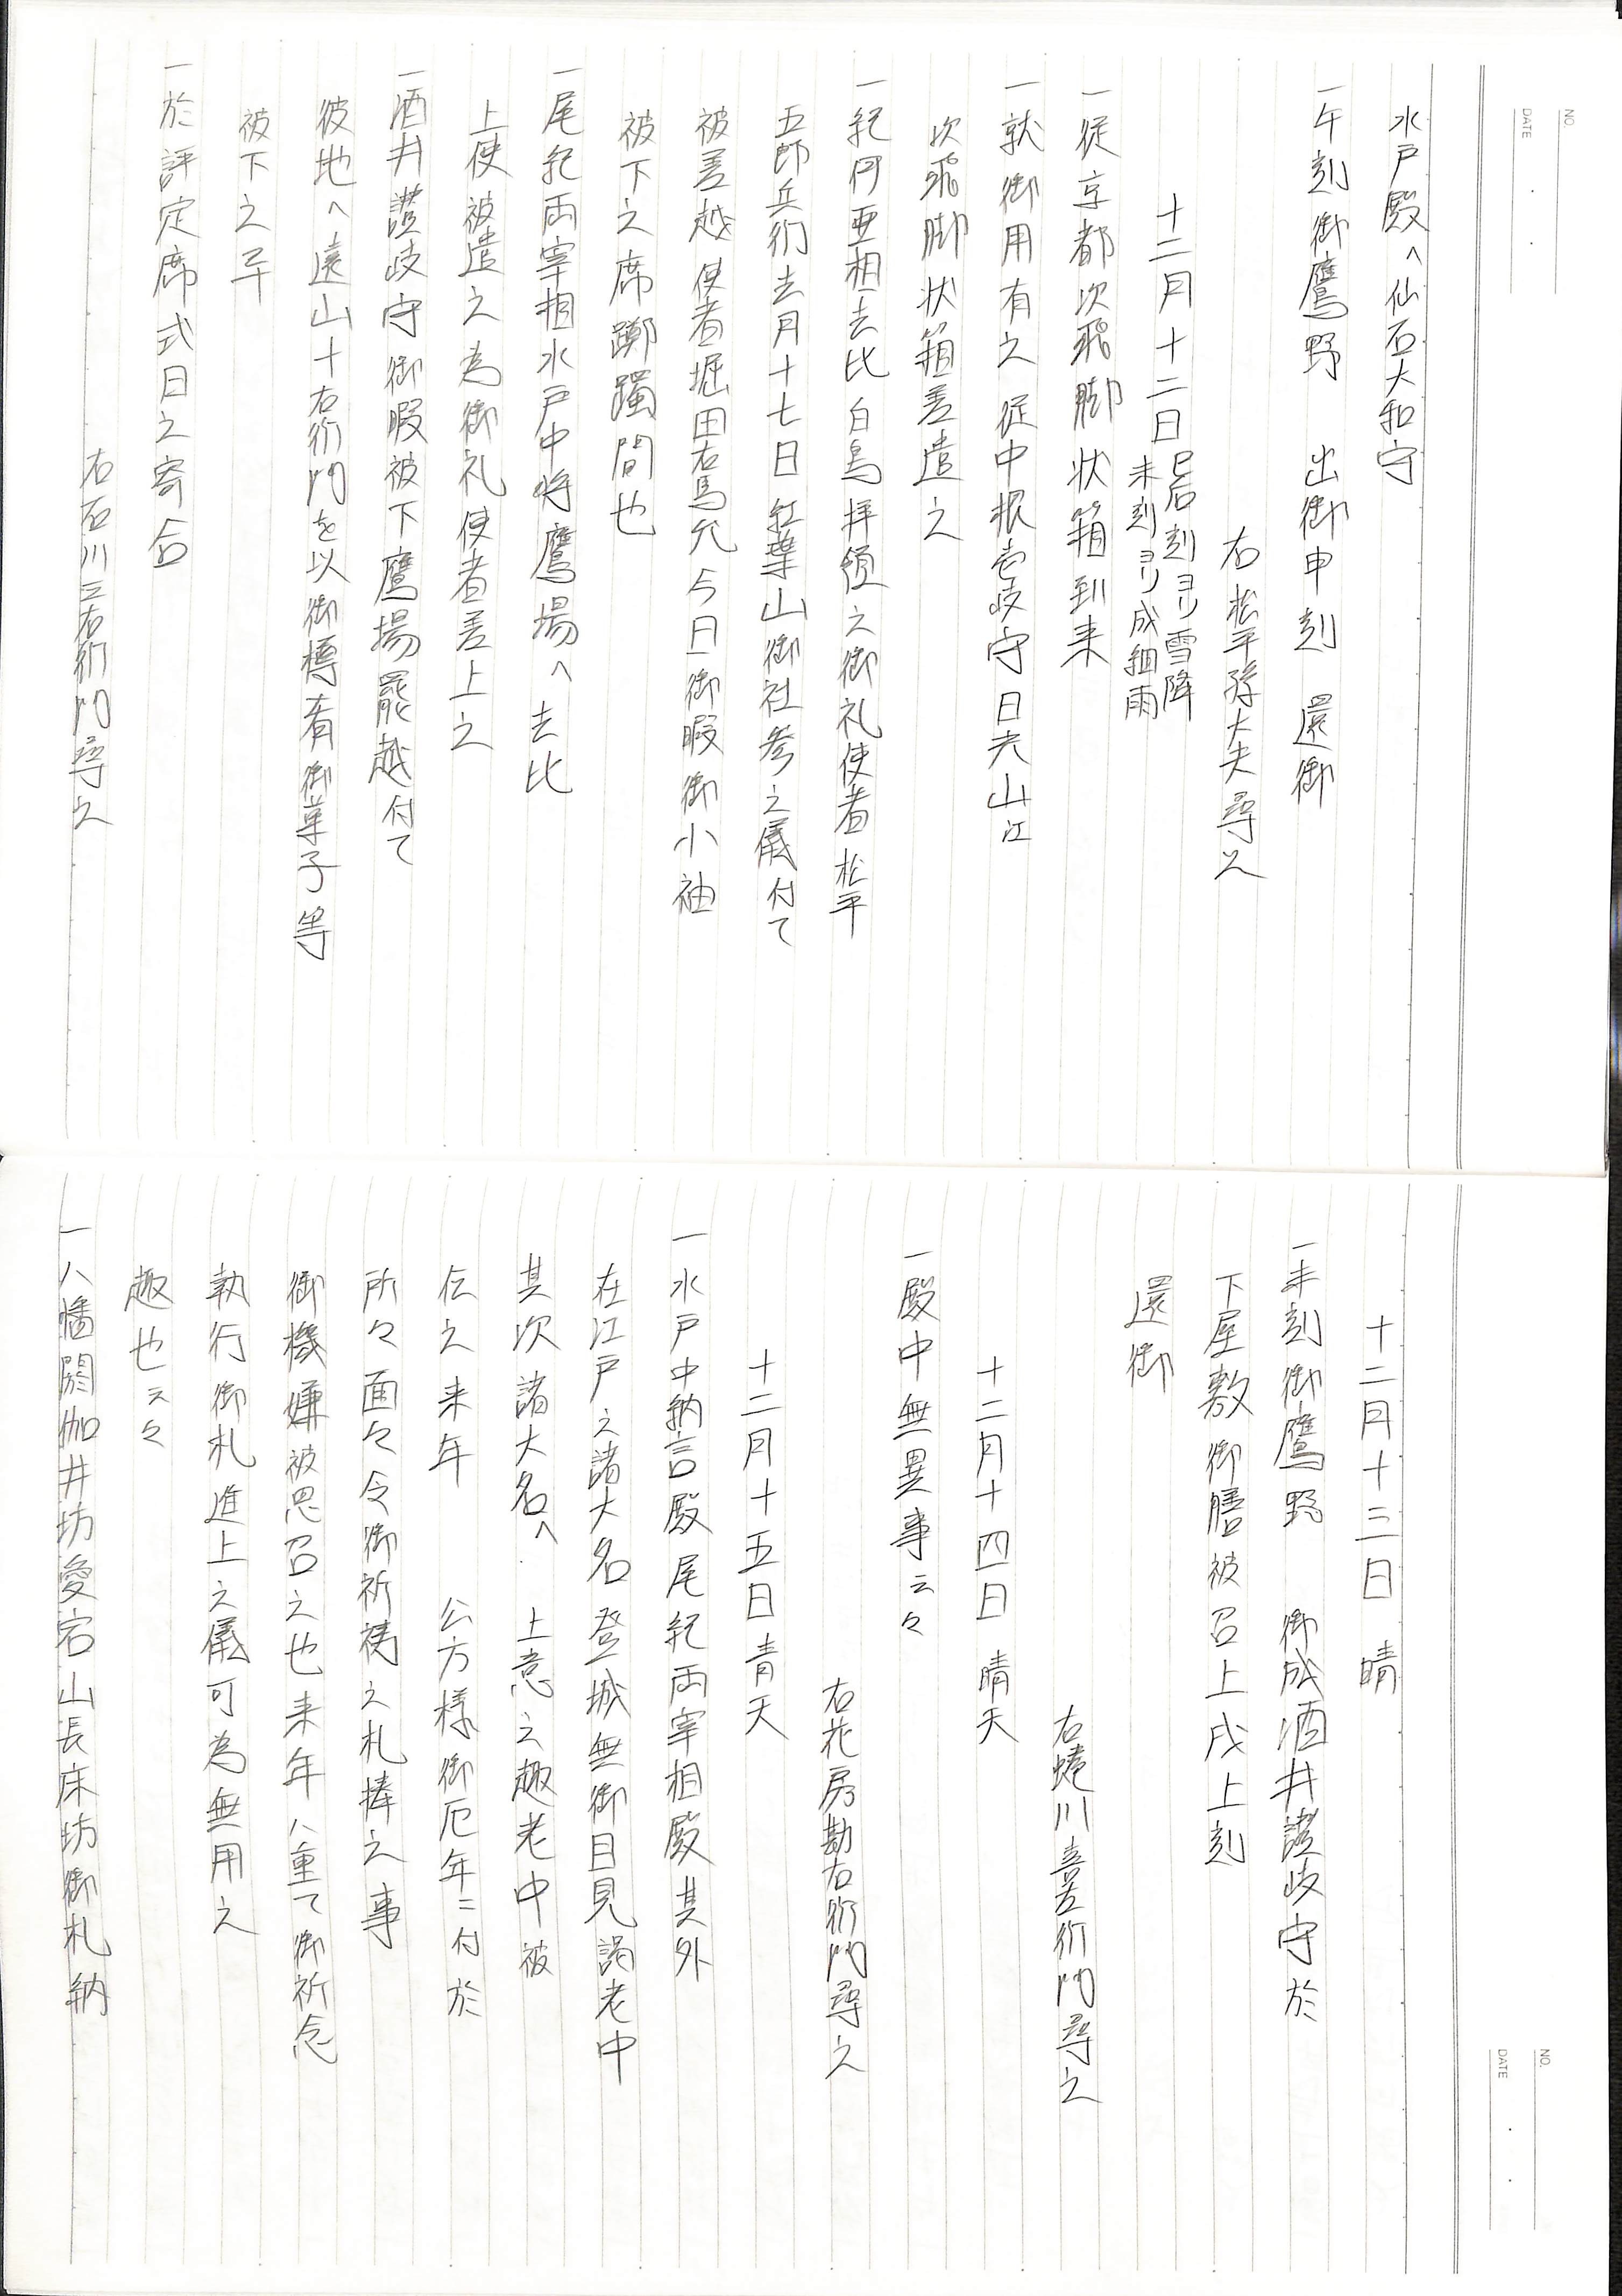 NO.
DATE
水戸殿へ仙石大和守
一午刻御鷹野　出御申刻　還御
右松平孫大夫尋之
十二月十二日 巳后刻ヨリ雪降
未刻ヨリ成細雨
一従京都次飛脚状箱到来
一就御用有之従中根壱岐守日光山江
次飛脚状箱差遣之
一紀伊亜相去比白鳥拝領之御礼使者松平
五郎兵衛去月十七日紅葉山御社参之儀付て
被差越使者堀田右馬允今日御暇御小袖
被下之席躑躅間也
一尾紀両宰相水戸中将鷹場へ去比
上使被遣之為御礼使者差上之
一酒井讃岐守御暇被下鷹場罷越付て
彼地へ遠山十右衛門を以御樽肴御菓子等
被下之于
一於評定席式日之寄合
右石川三右衛門尋之
NO.
DATE
十二月十三日　晴
一未刻御鷹野　御成酒井讃岐守於
下屋敷御膳被召上戌上刻
還御
右蜷川喜左衛門尋之
十二月十四日　晴天
一殿中無異事云々
右花房勘右衛門尋之
十二月十五日青天
一水戸中納言殿尾紀両宰相殿其外
在江戸之諸大名登城無御目見謁老中
其次諸大名へ　上意之趣老中被
伝之来年　公方様御厄年ニ付於
所々面々令御祈祷之札捧之事
御機嫌被思召之也来年八重て御祈念
執行御札進上之儀可為無用之
趣也云々
一八幡閼伽井坊愛宕山長床坊御札納